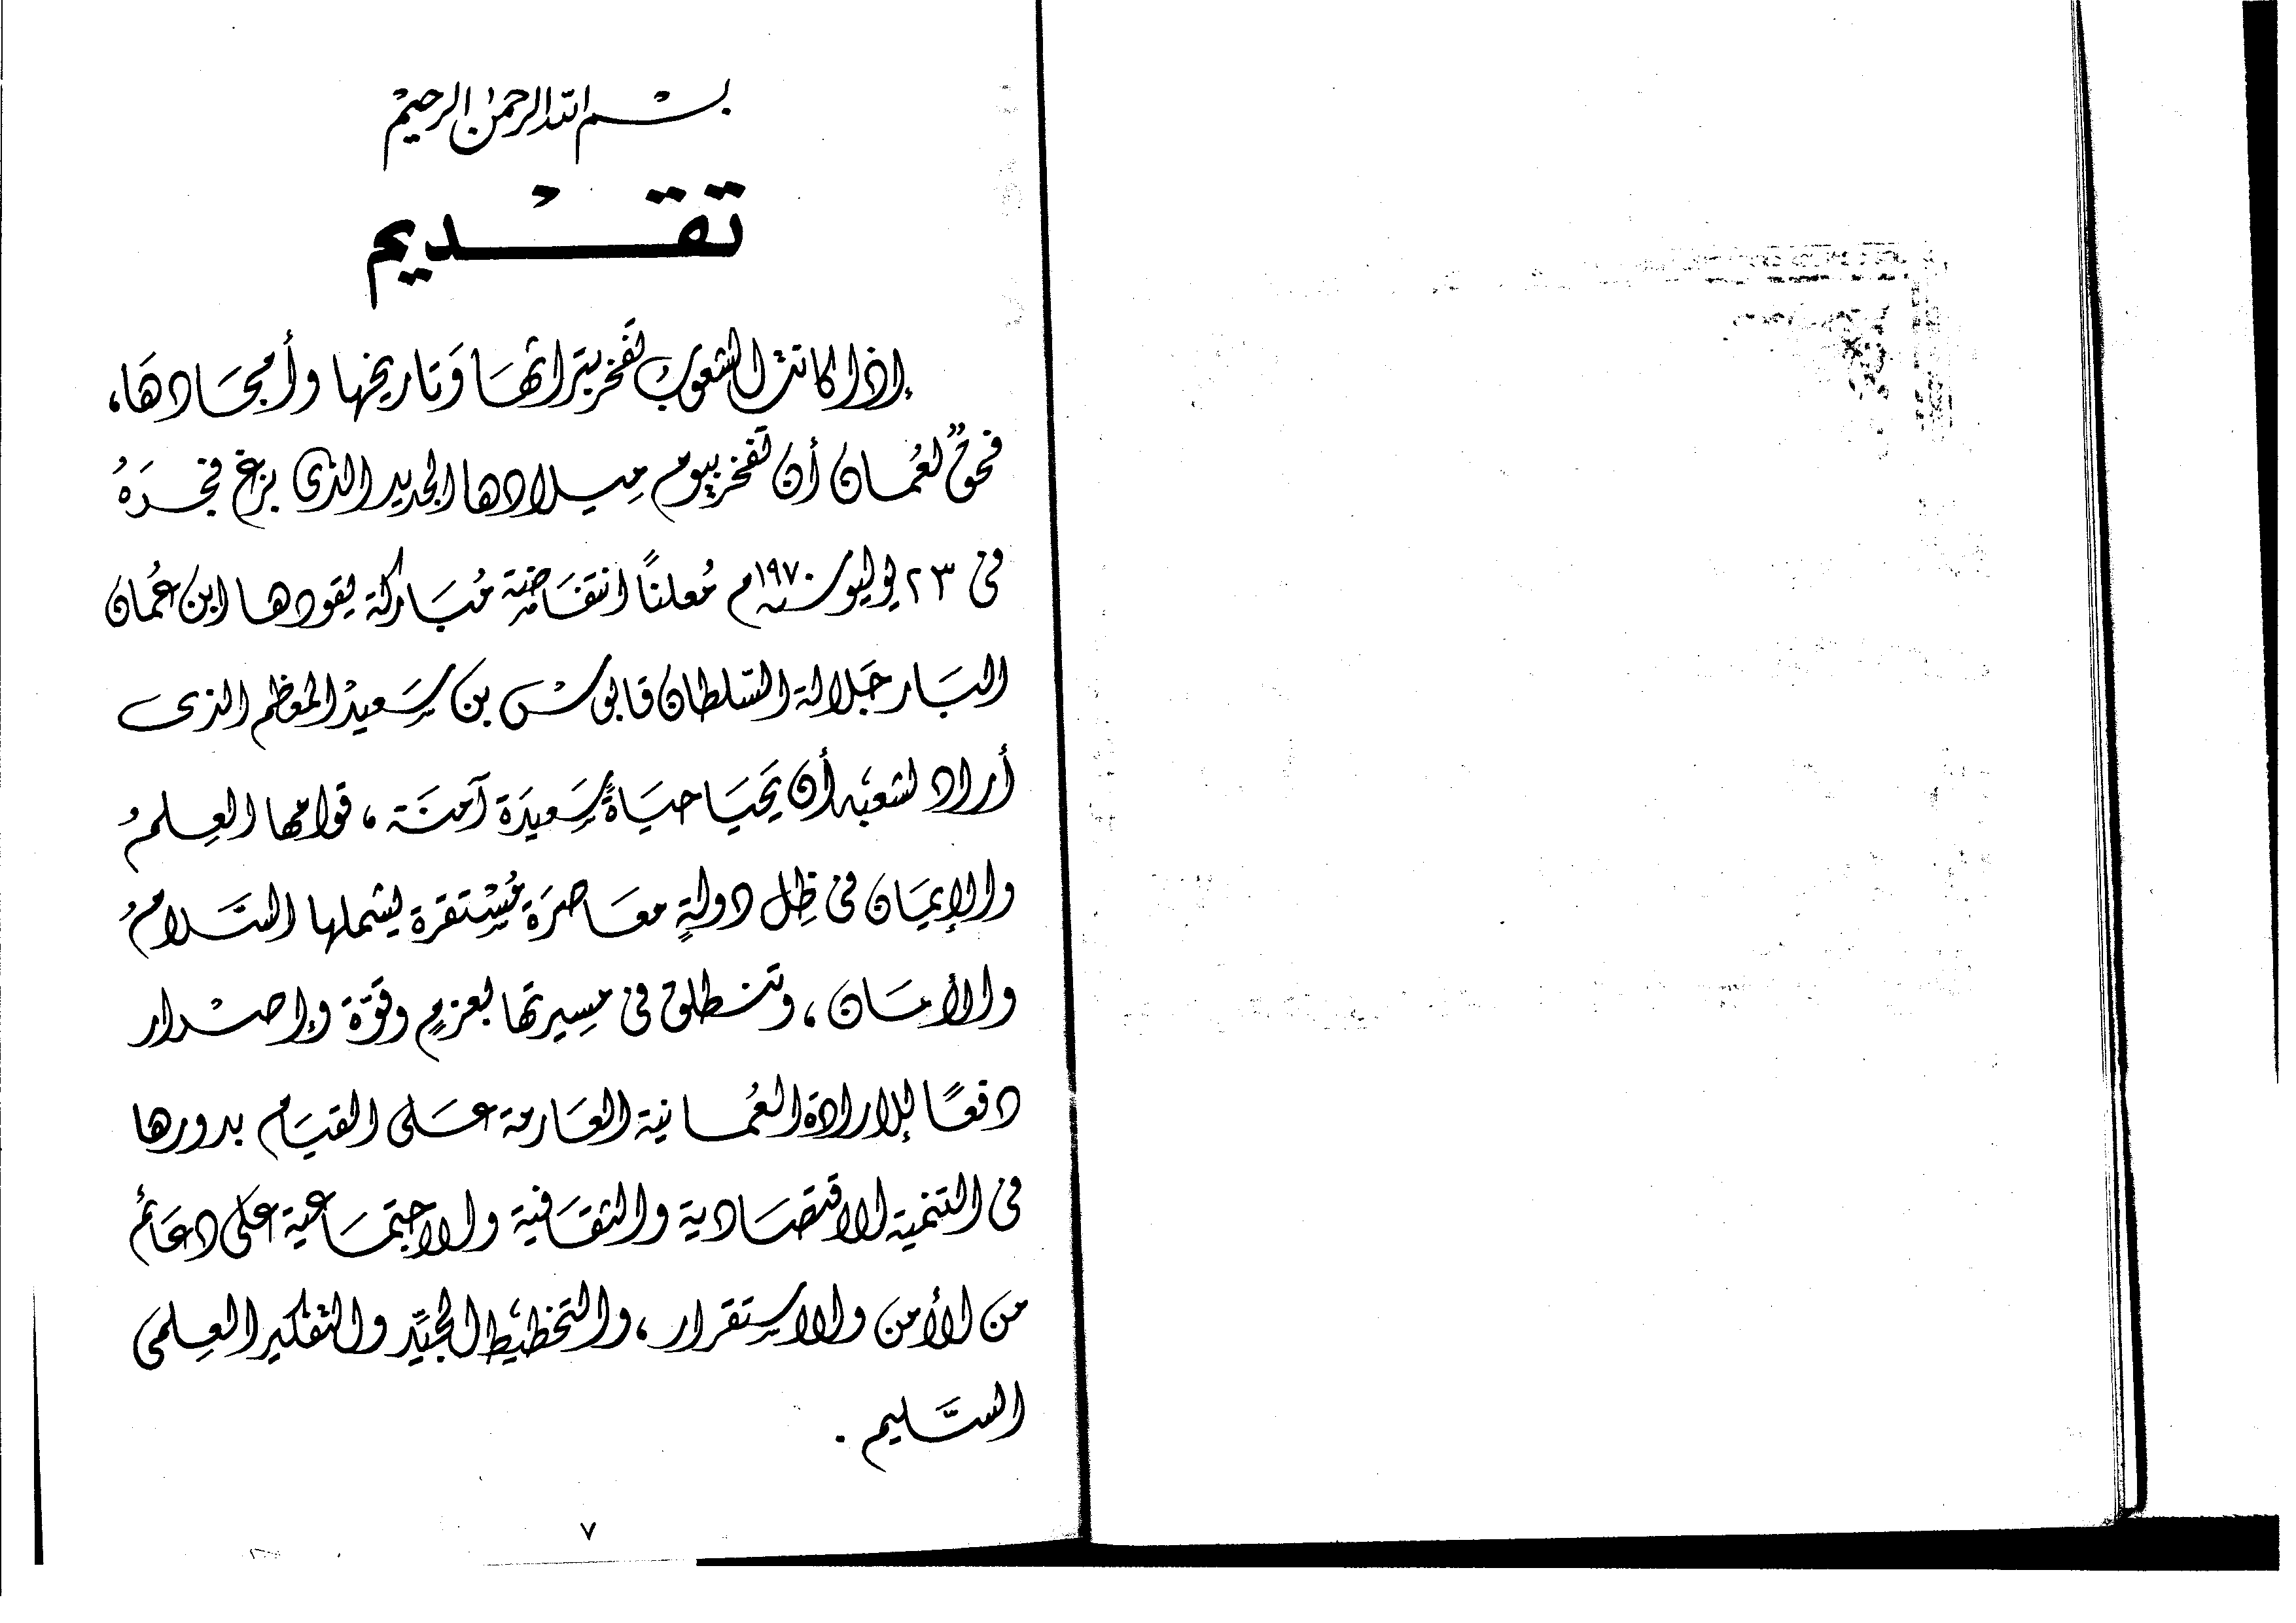 بسم الله الرحمن الرحيم
تقديم
إذا كانت الشعوب تفخر بتراثها وتاريخها وأمجادها،
فحقٌ لعُمان أن تفخر بيوم ميلادها الجديد الذى بزغ فجره
فى ٢٣ يوليو سنة ١٩٧٠م مُعلنًا انتفاضة مُباركة يقودها ابن عُمان
البار جَلالة السّلطان قابوسْ بن سَعيدْ المعظم الذى
أراد لشعبه أن يَحيَا حيَاةً سَعيدَة آمنَة، قوامها العِلمُ
والإيمَان فى ظِل دولةٍ معَاصرَة مُسْتقرة يشملها السَّلامُ
والأمَان، وتنطلق فى مسِيرتها بعزمٍ وقوّة وإصْرار
دفعًا للإرادة العُمانية العَارمة عَلى القيَام بدورها
فى التنمية الاقتصَادية والثقَافية والاجتمَاعية عَلى دعَائم
من الأمن والاستقرار، والتخطيط الجيِّد والتفكير العِلمى
السَّليم.
٧